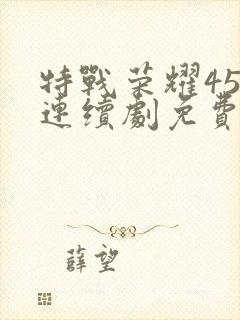 特戰荣耀45
連續劇免費
薛望